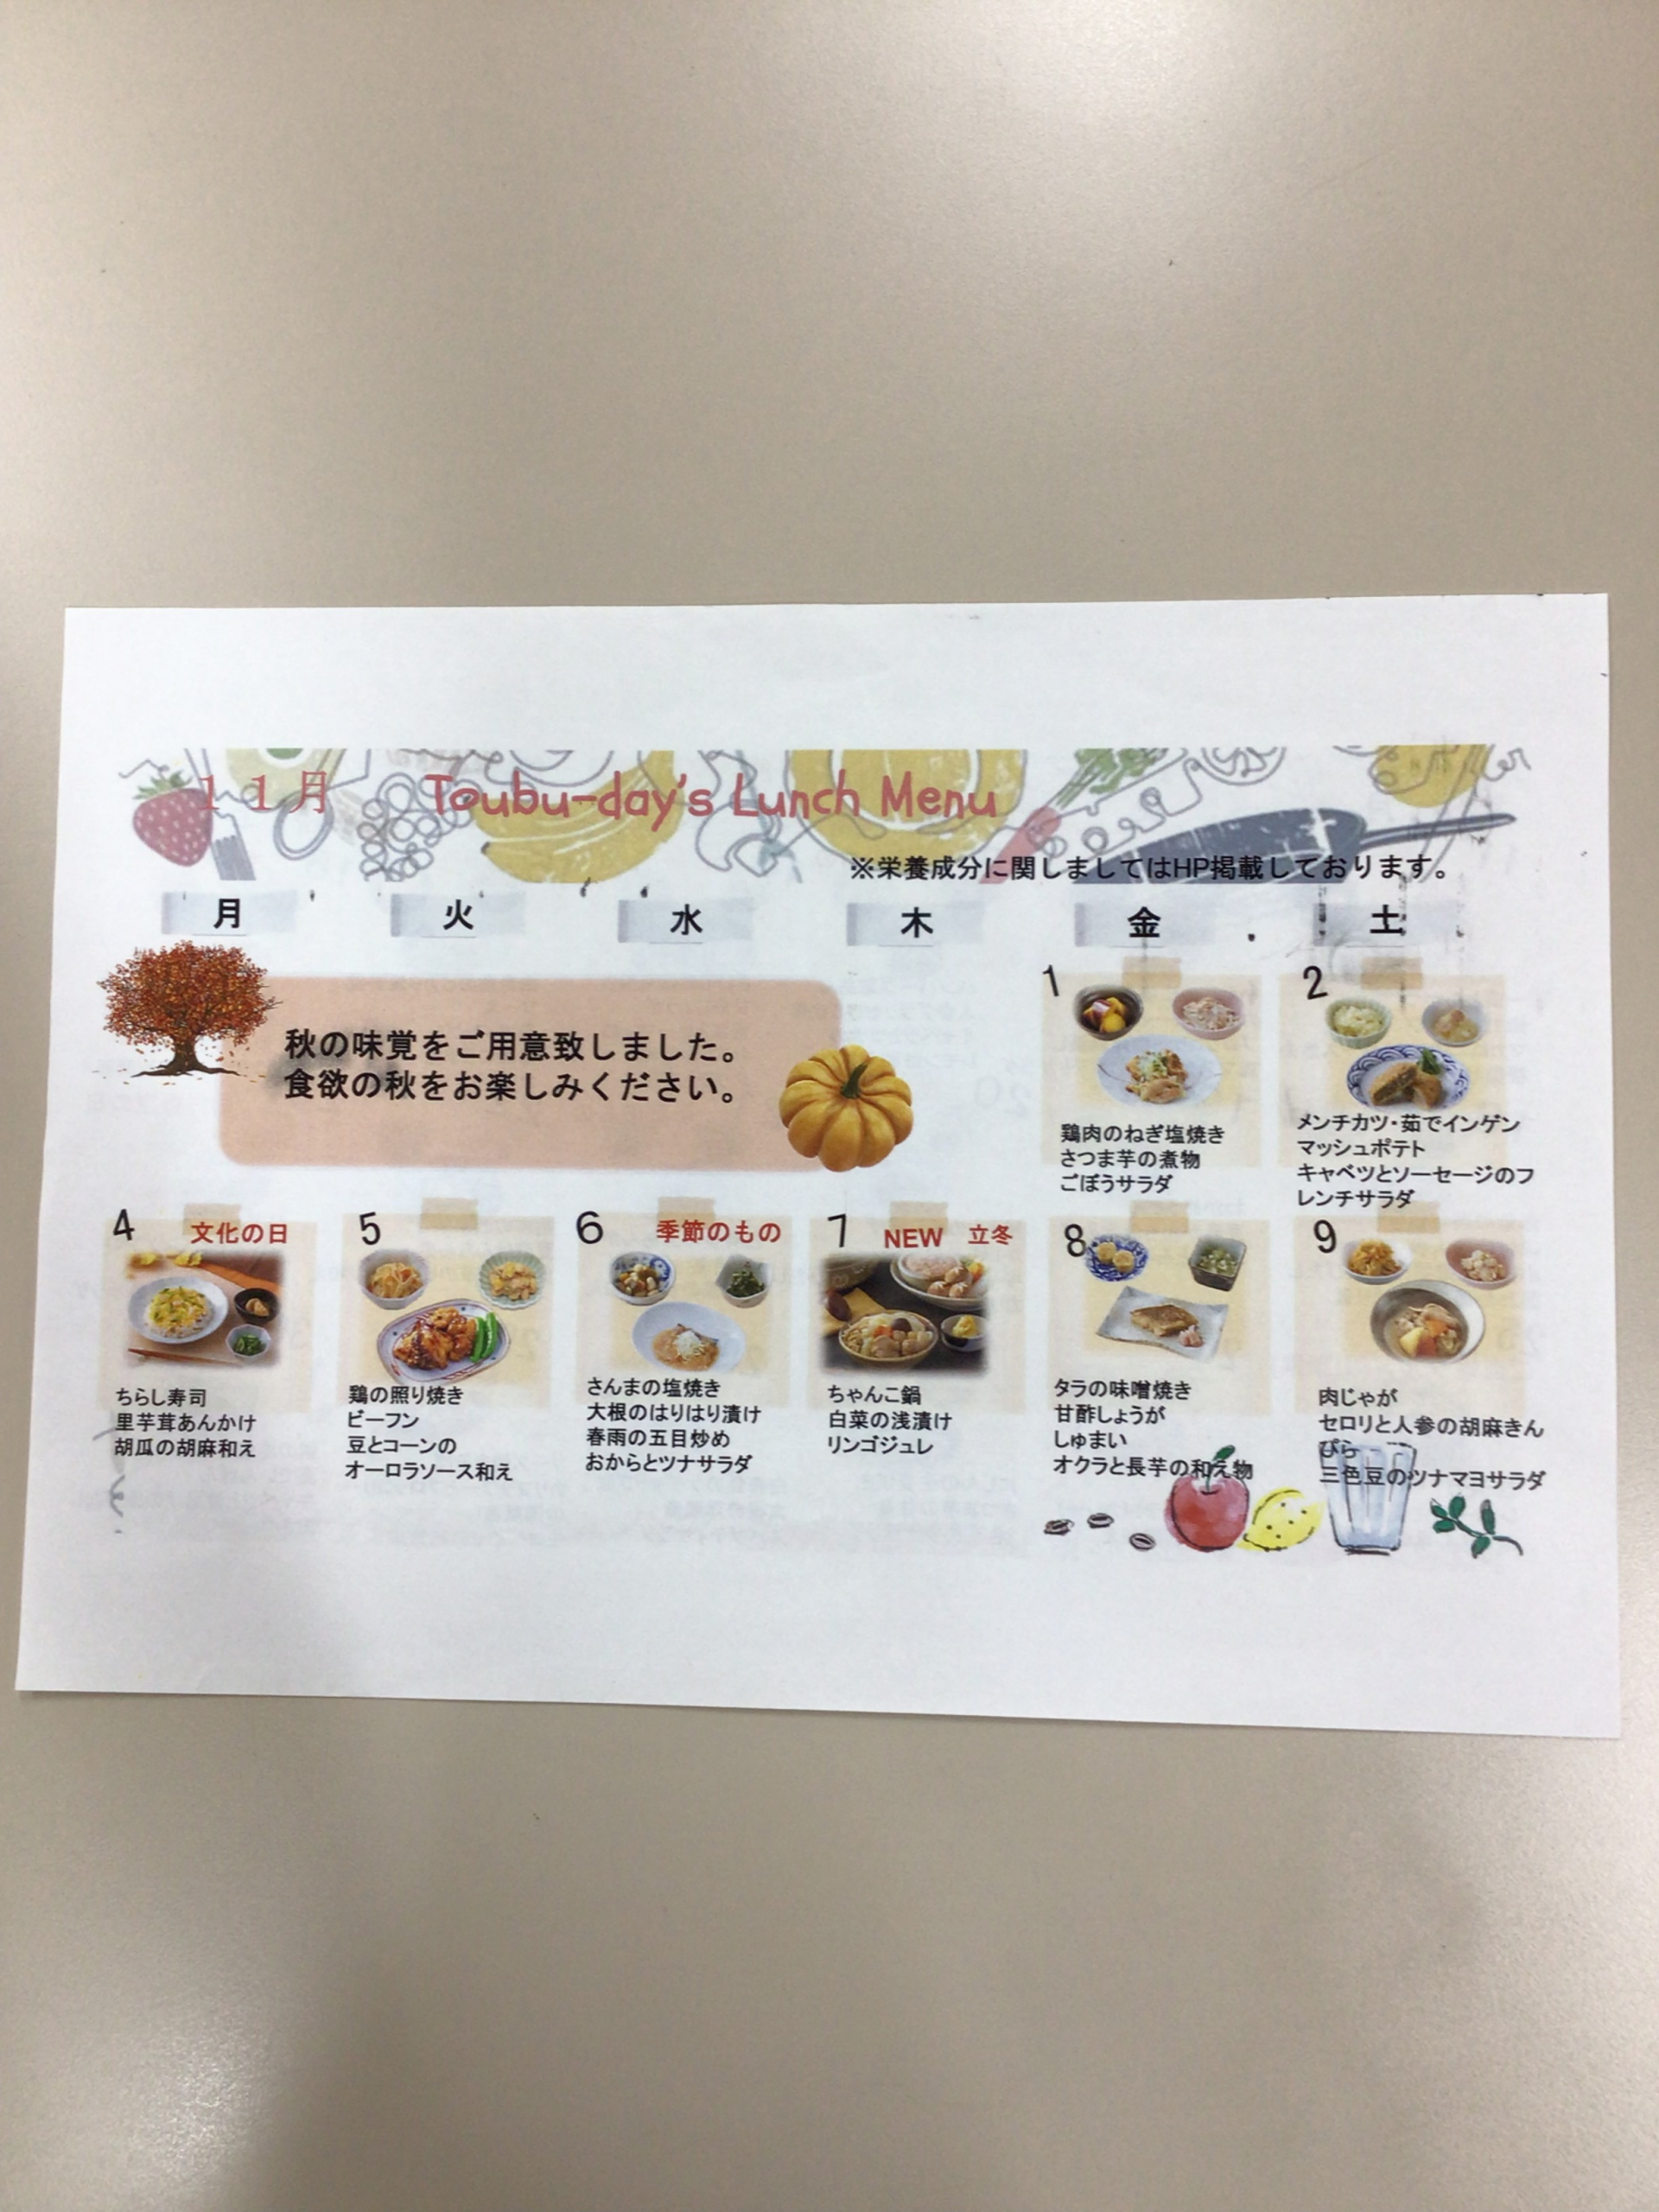 11月 Toubu-day's Lunch Menu
※栄養成分に関しましてはHP掲載しております。
月 火 水 木 金 土
秋の味覚をご用意致しました。
食欲の秋をお楽しみください。
1
鶏肉のねぎ塩焼き
さつま芋の煮物
ごぼうサラダ
2
メンチカツ・茹でインゲン
マッシュポテト
キャベツとソーセージのフ
レンチサラダ
4 文化の日
ちらし寿司
里芋茸あんかけ
胡瓜の胡麻和え
5
鶏の照り焼き
ビーフン
豆とコーンの
オーロラソース和え
6 季節のもの
さんまの塩焼き
大根のはりはり漬け
春雨の五目炒め
おからとツナサラダ
7 NEW 立冬
ちゃんこ鍋
白菜の浅漬け
リンゴジュレ
8
タラの味噌焼き
甘酢しょうが
しゅまい
オクラと長芋の和え物
9
肉じゃが
セロリと人参の胡麻きん
ぴら
三色豆のツナマヨサラダ